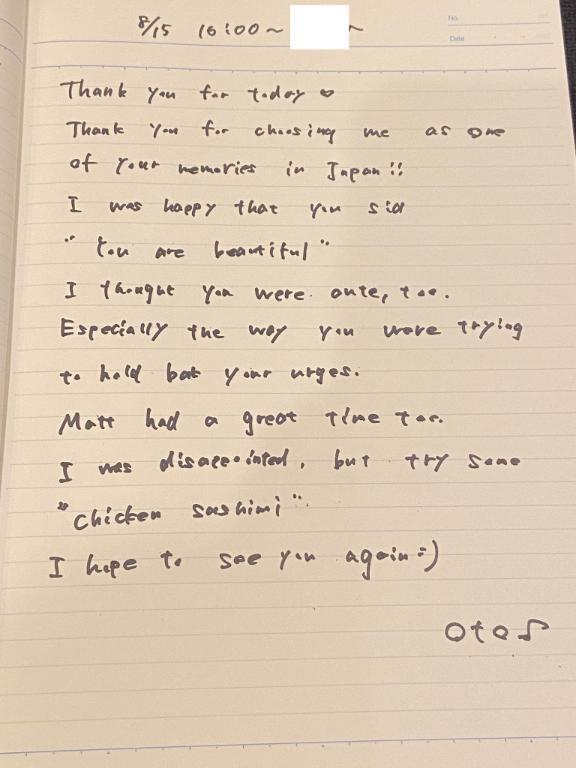 8/15 16:00~ ~
No.
Date
Thank you for today ♡
Thank you for choosing me as one
of your memories in Japan!!
I was happy that you sid
"You are beautiful"
I thought you were cute, too.
Especially the way you were trying
to hold bak your urges.
Matt had a great time too.
I was disappointed, but try some
"chicken sashimi".
I hope to see you again :)